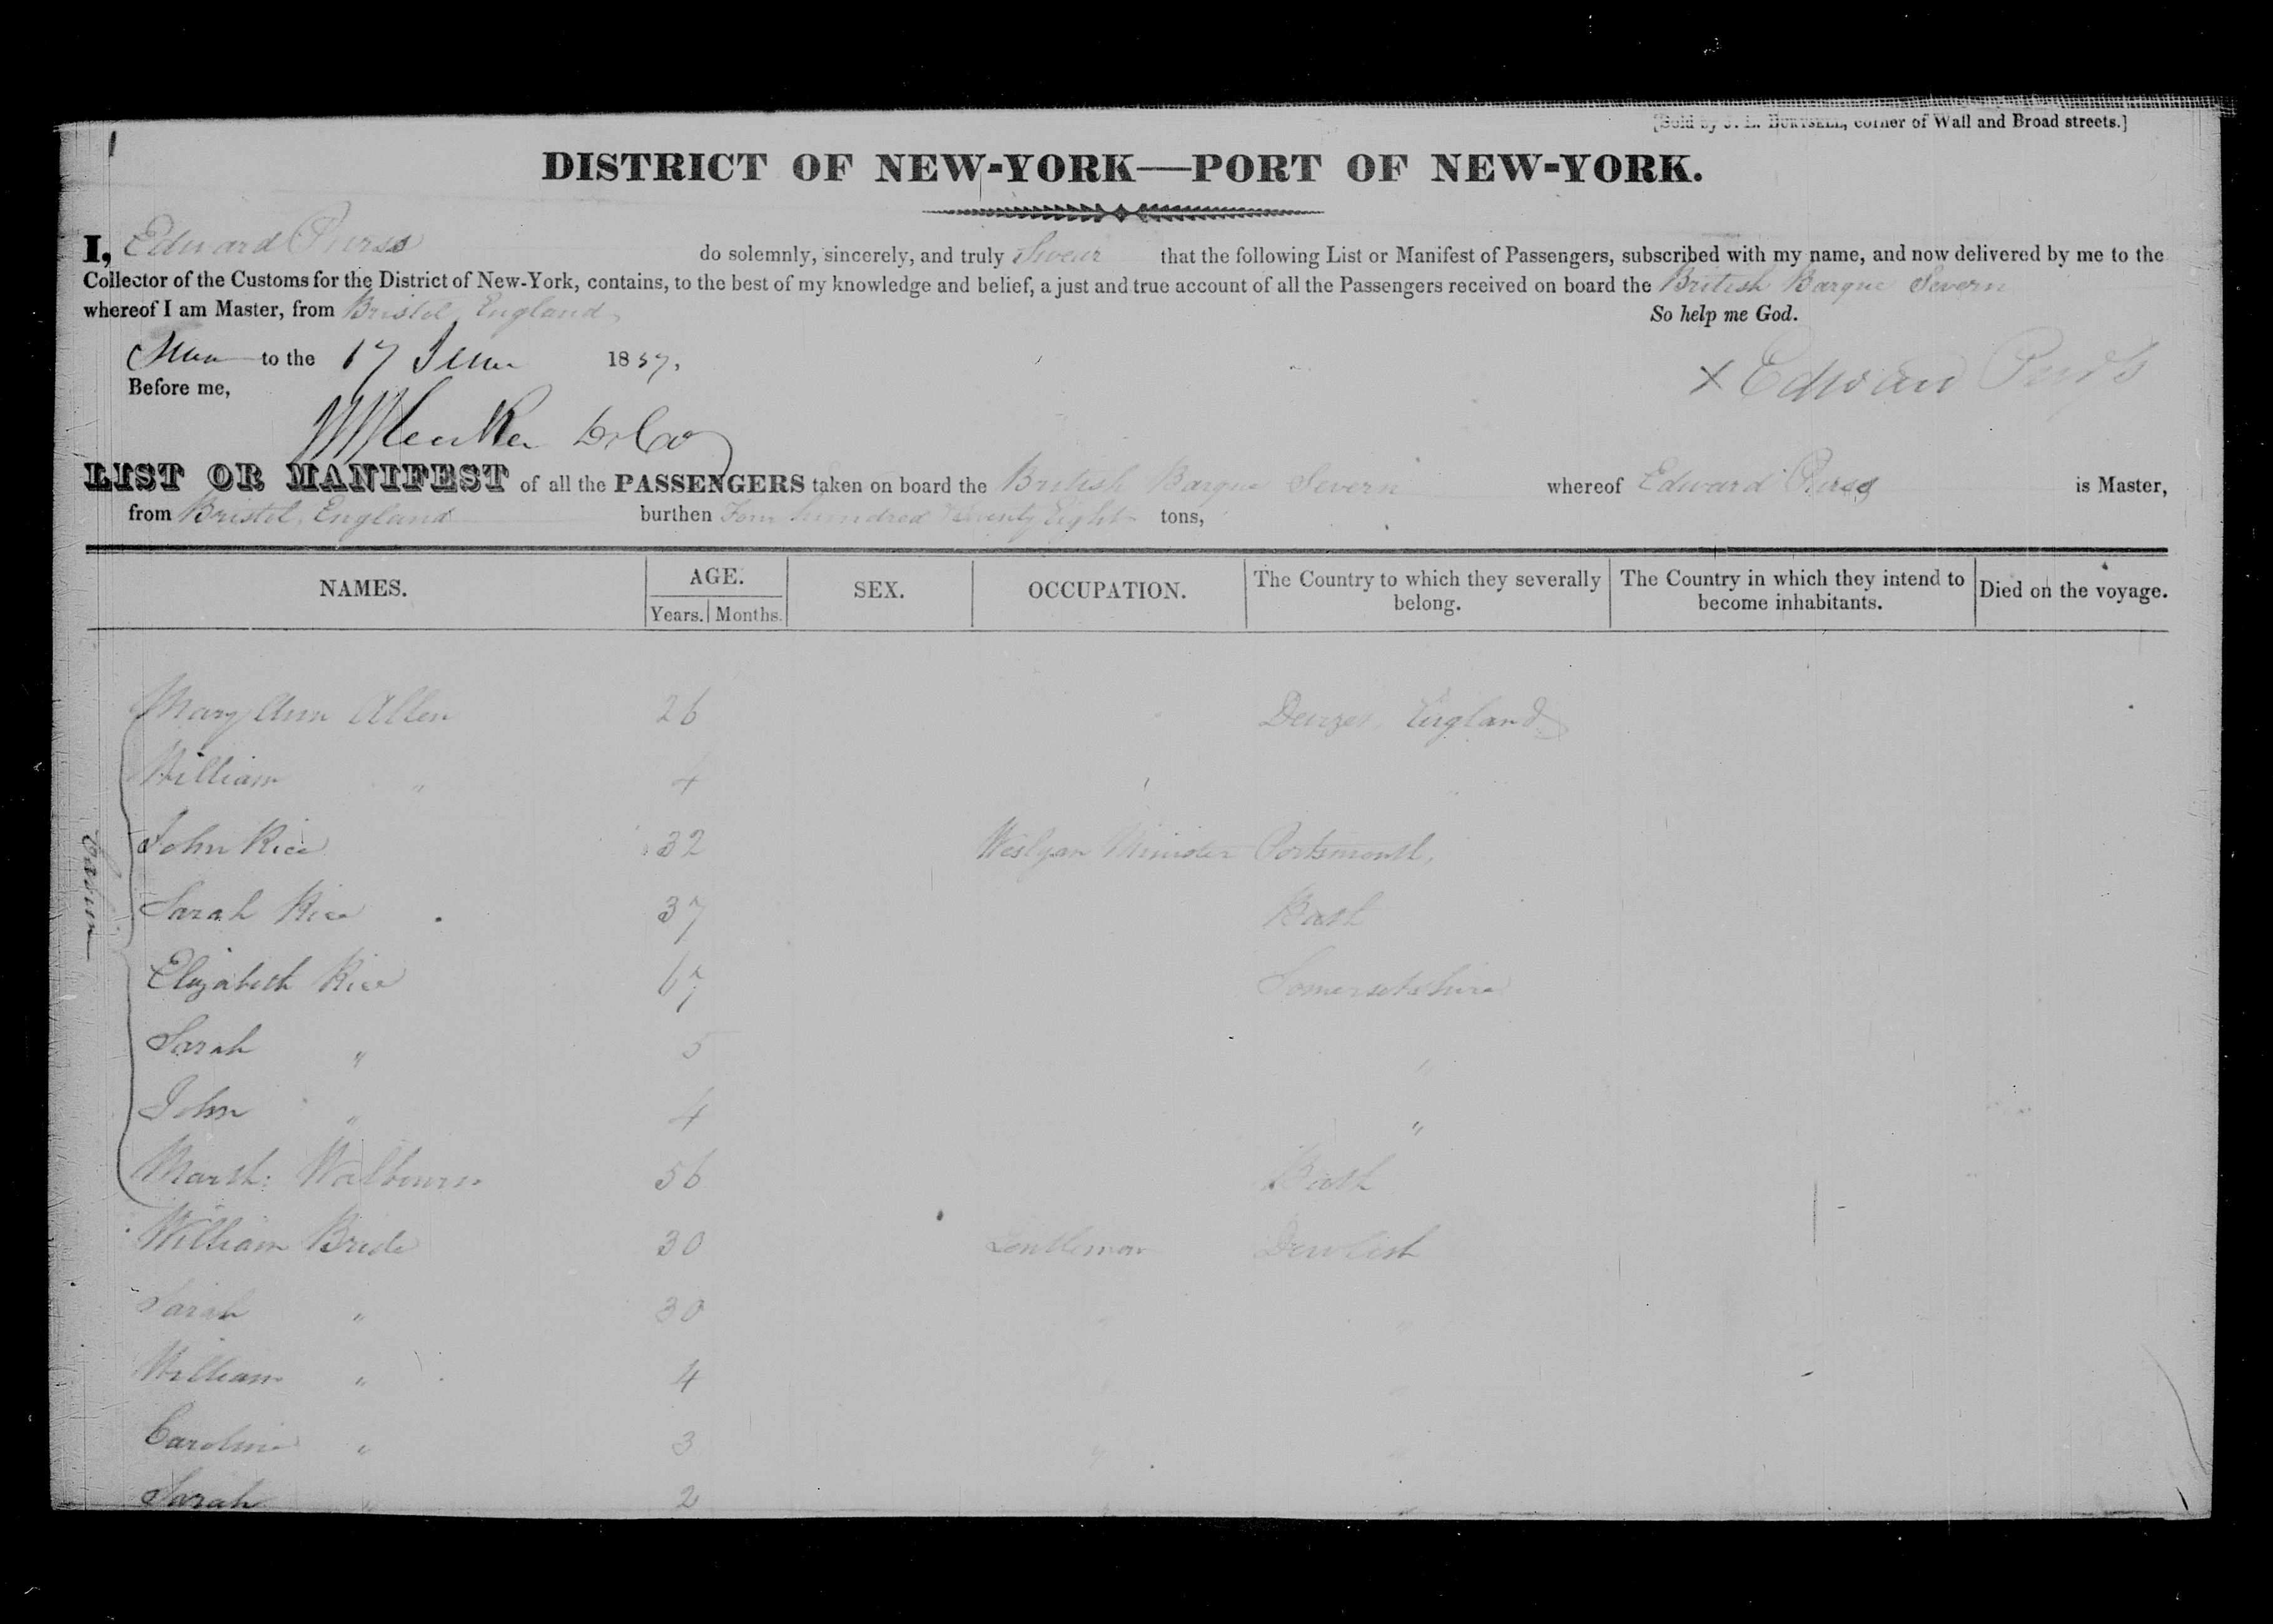 [Sold by J. L. BURTSELL, corner of Wall and Broad streets.]
DISTRICT OF NEW-YORK—PORT OF NEW-YORK.
I, Edward do solemnly, sincerely, and truly Swear that the following List or Manifest of Passengers, subscribed with my name, and now delivered by me to the
Collector of the Customs for the District of New-York, contains, to the best of my knowledge and belief, a just and true account of all the Passengers received on board the British Barque Severn
whereof I am Master, from Bristol, England, So help me God.
to the 17 June 1857.
Before me,
X Edward
LIST OR MANIFEST of all the PASSENGERS taken on board the British Barque Severn whereof Edward is Master,
from Bristol, England burthen Four hundred Seventy Eight tons,
NAMES. AGE. SEX. OCCUPATION. The Country to which they severally belong. The Country in which they intend to become inhabitants. Died on the voyage.
Years. Months.
Cabin
Mary Ann Allen 26 England
William " 4
John Rice 32 Weslyan Minister Portsmouth,
Sarah Rice 37 Bath
Elizabeth Rice 67 Somersetshire
Sarah " 5 "
John " 4 "
56 Bath
William Bride 30 Gentleman Dawlish
Sarah " 30 "
William " 4
Caroline " 3 "
Sarah " 2